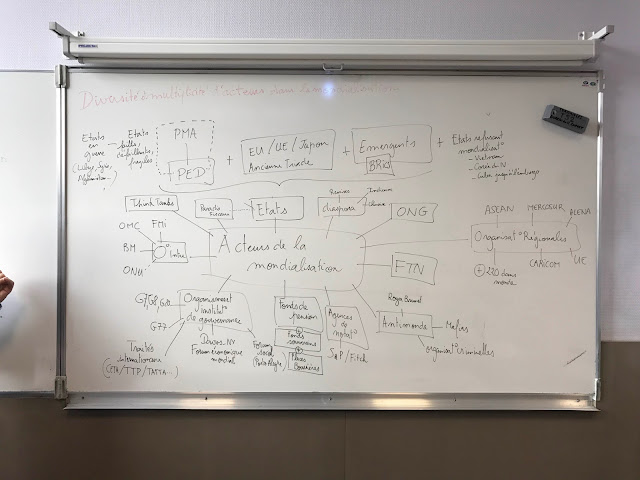 Diversité & multiplicité d'acteurs dans la mondialisation
Etats
en
guerre
Etats
faillis,
fragiles
PMA
PED
+
EU / UE / Japon
Ancienne Triade
+
Emergents
BRICS
+
Etats refusant
mondialisat°
- Vietnam
- Corée du N
Think Tanks
Paradis
Fiscaux
Etats
diaspora
Chinoise
ONG
OMC
FMI
BM
ONU
Acteurs de la
mondialisation
FTN
ASEAN
MERCOSUR
ALENA
Organisat° Régionales
CARICOM
UE
+ 270 dans
monde
G7/G8/G20
G77
Organisment
institut°
de gouvernance
Traités
internationaux
Davos NY
Forum économique
mondial
Forum
social
(Porto Alegre)
Fonds de
pension
+
Fonds
souverains
+
Places
Boursières
Agences
de
notat°
S&P / Fitch
Roger Brunet
Antimonde
Mafias
organisat° criminelles